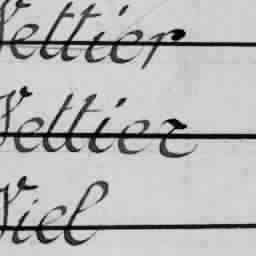 Vettier
Vettiez
Viel